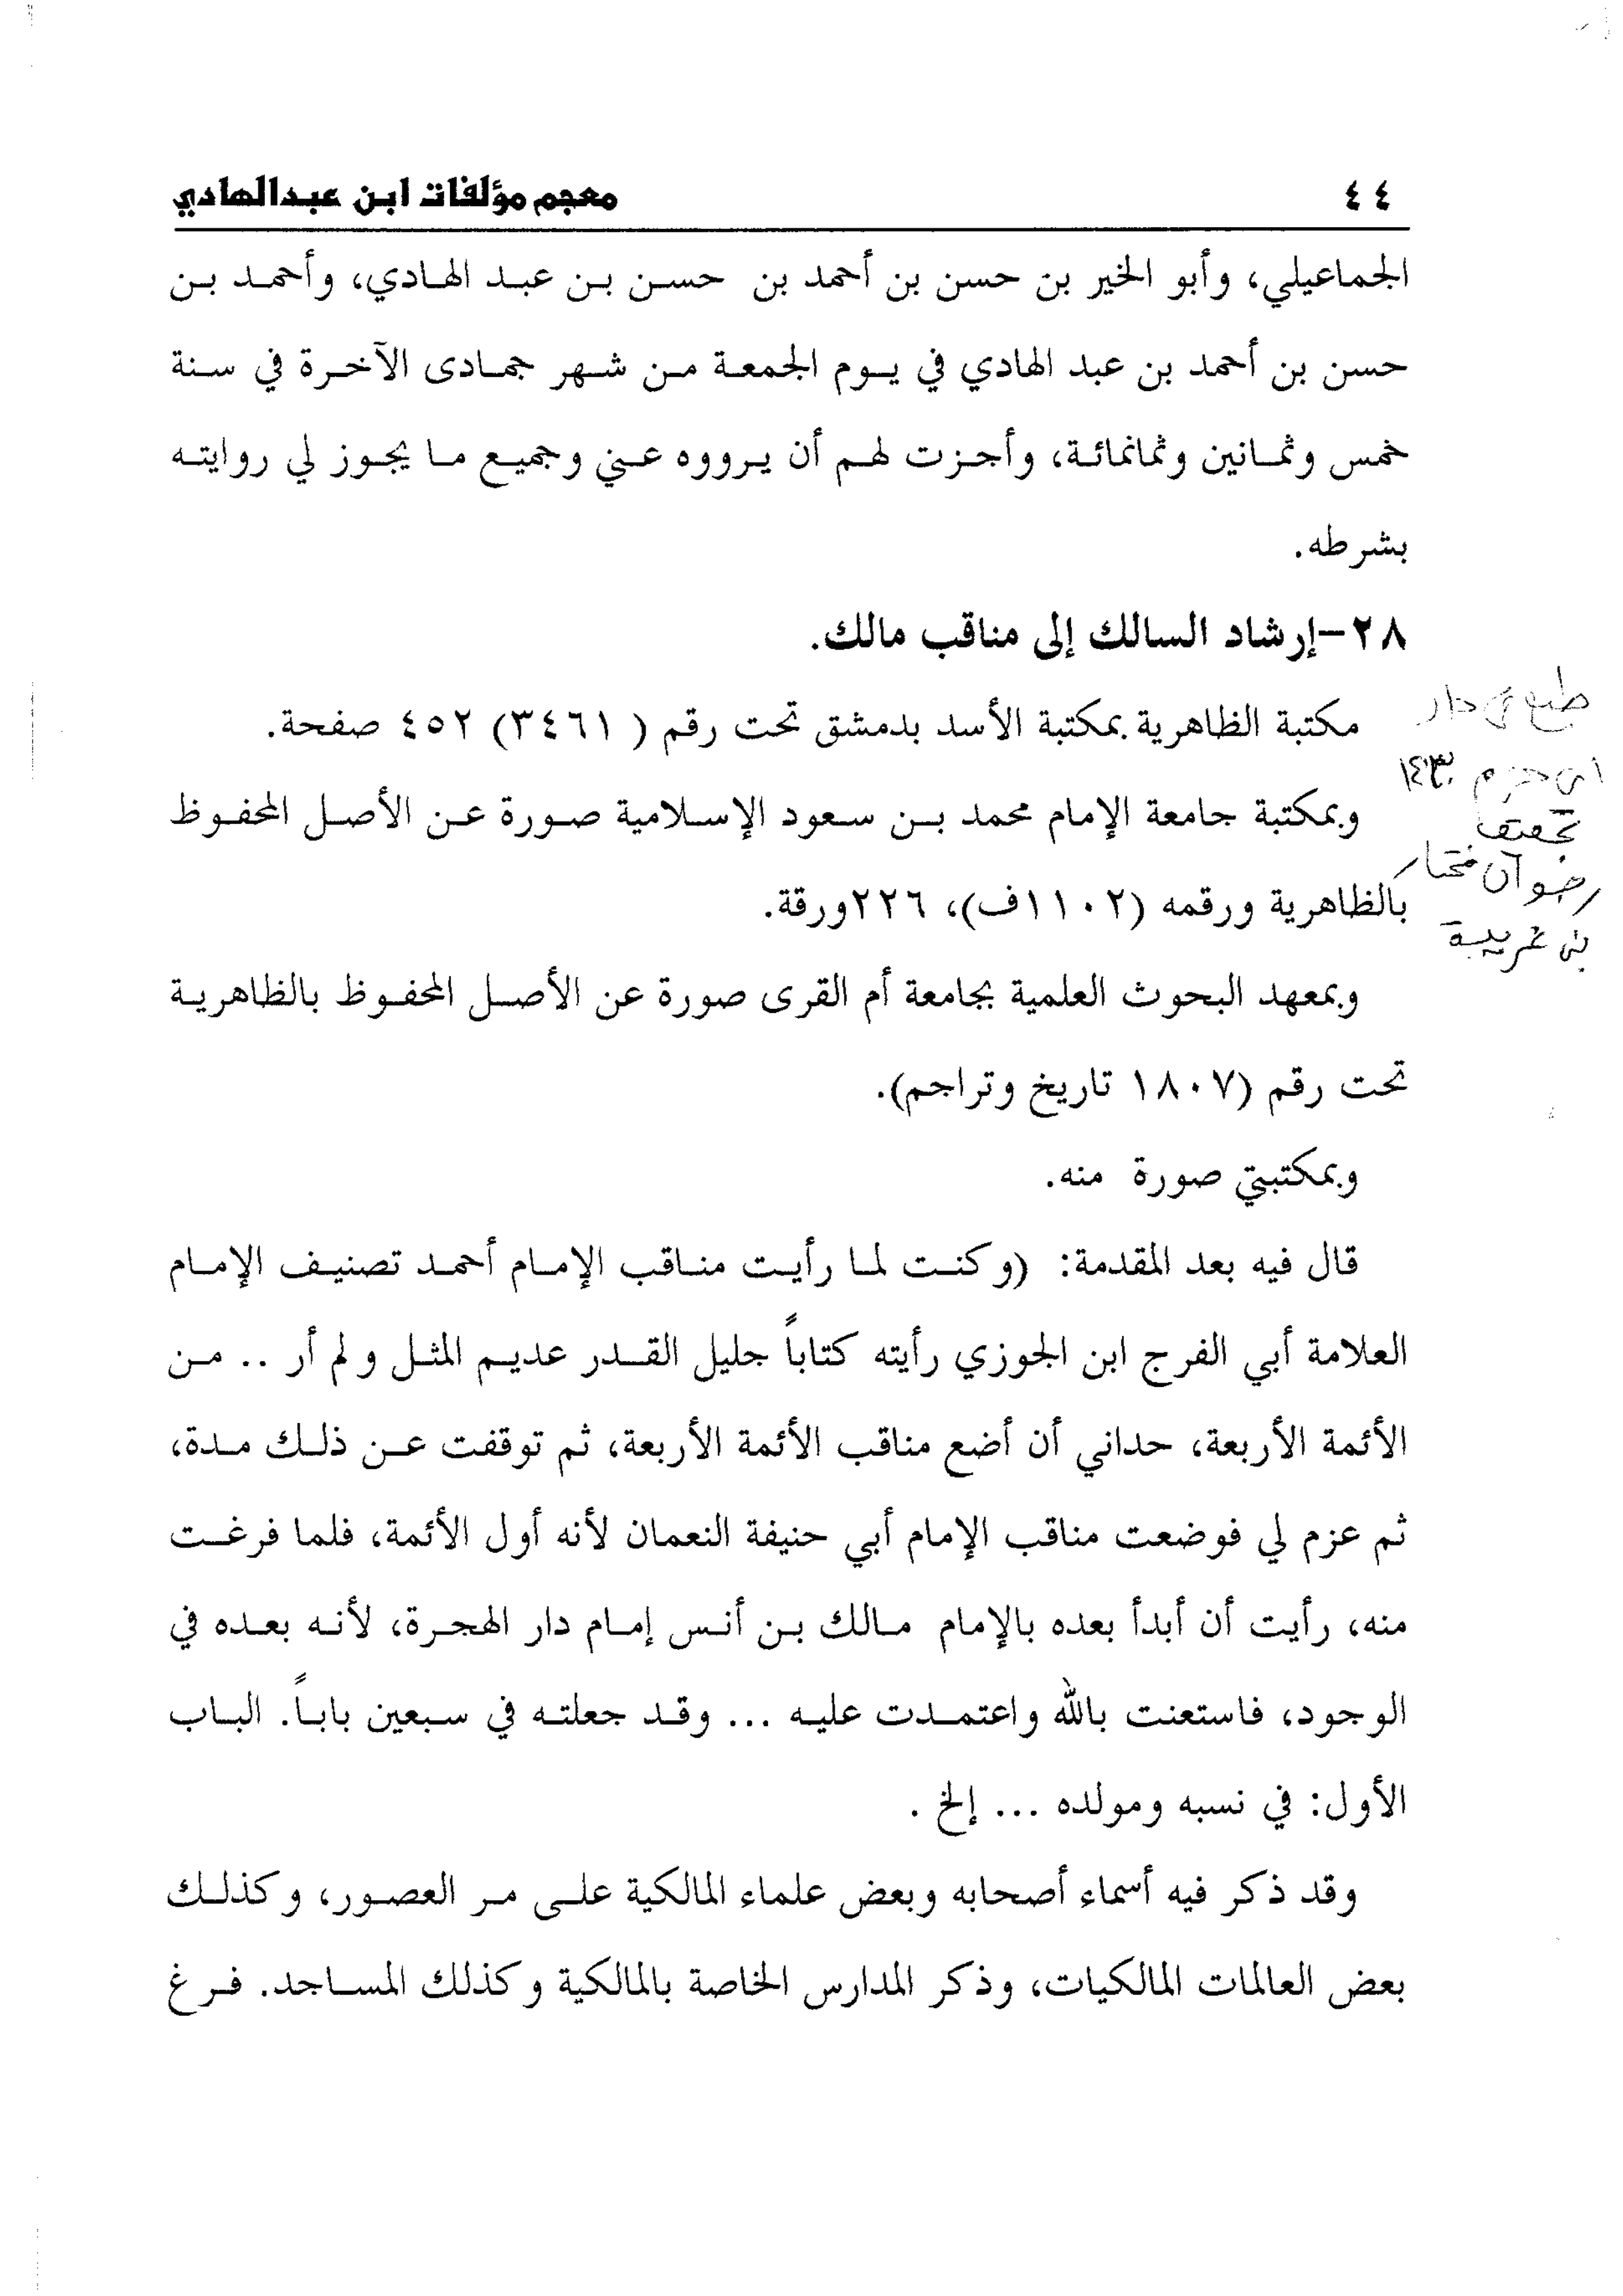 ٤٤
معجم مؤلفات ابن عبدالهادي
الجماعيلي، وأبو الخير بن حسن بن أحمد بن حسن بن عبد الهادي، وأحمد بن
حسن بن أحمد بن عبد الهادي في يوم الجمعة من شهر جمادى الآخرة في سنة
خمس وثمانين وثمانمائة، وأجزت لهم أن يرووه عني وجميع ما يجوز لي روايته
بشرطه.
٢٨-إرشاد السالك إلى مناقب مالك.
مكتبة الظاهرية بمكتبة الأسد بدمشق تحت رقم ( ٣٤٦١) ٤٥٢ صفحة.
وبمكتبة جامعة الإمام محمد بن سعود الإسلامية صورة عن الأصل المحفوظ
بالظاهرية ورقمه (١١٠٢ف)، ٢٢٦ورقة.
وبمعهد البحوث العلمية بجامعة أم القرى صورة عن الأصل المحفوظ بالظاهرية
تحت رقم (١٨٠٧ تاريخ وتراجم).
وبمكتبتي صورة منه.
قال فيه بعد المقدمة: (وكنت لما رأيت مناقب الإمام أحمد تصنيف الإمام
العلامة أبي الفرج ابن الجوزي رأيته كتاباً جليل القدر عديم المثل ولم أر .. من
الأئمة الأربعة، حداني أن أضع مناقب الأئمة الأربعة، ثم توقفت عن ذلك مدة،
ثم عزم لي فوضعت مناقب الإمام أبي حنيفة النعمان لأنه أول الأئمة، فلما فرغت
منه، رأيت أن أبدأ بعده بالإمام مالك بن أنس إمام دار الهجرة، لأنه بعده في
الوجود، فاستعنت بالله واعتمدت عليه ... وقد جعلته في سبعين باباً. الباب
الأول: في نسبه ومولده ... إلخ .
وقد ذكر فيه أسماء أصحابه وبعض علماء المالكية على مر العصور، وكذلك
بعض العالمات المالكيات، وذكر المدارس الخاصة بالمالكية وكذلك المساجد. فرغ
طبع في دار
ابن حزم
رضوان مختار
بن غربية